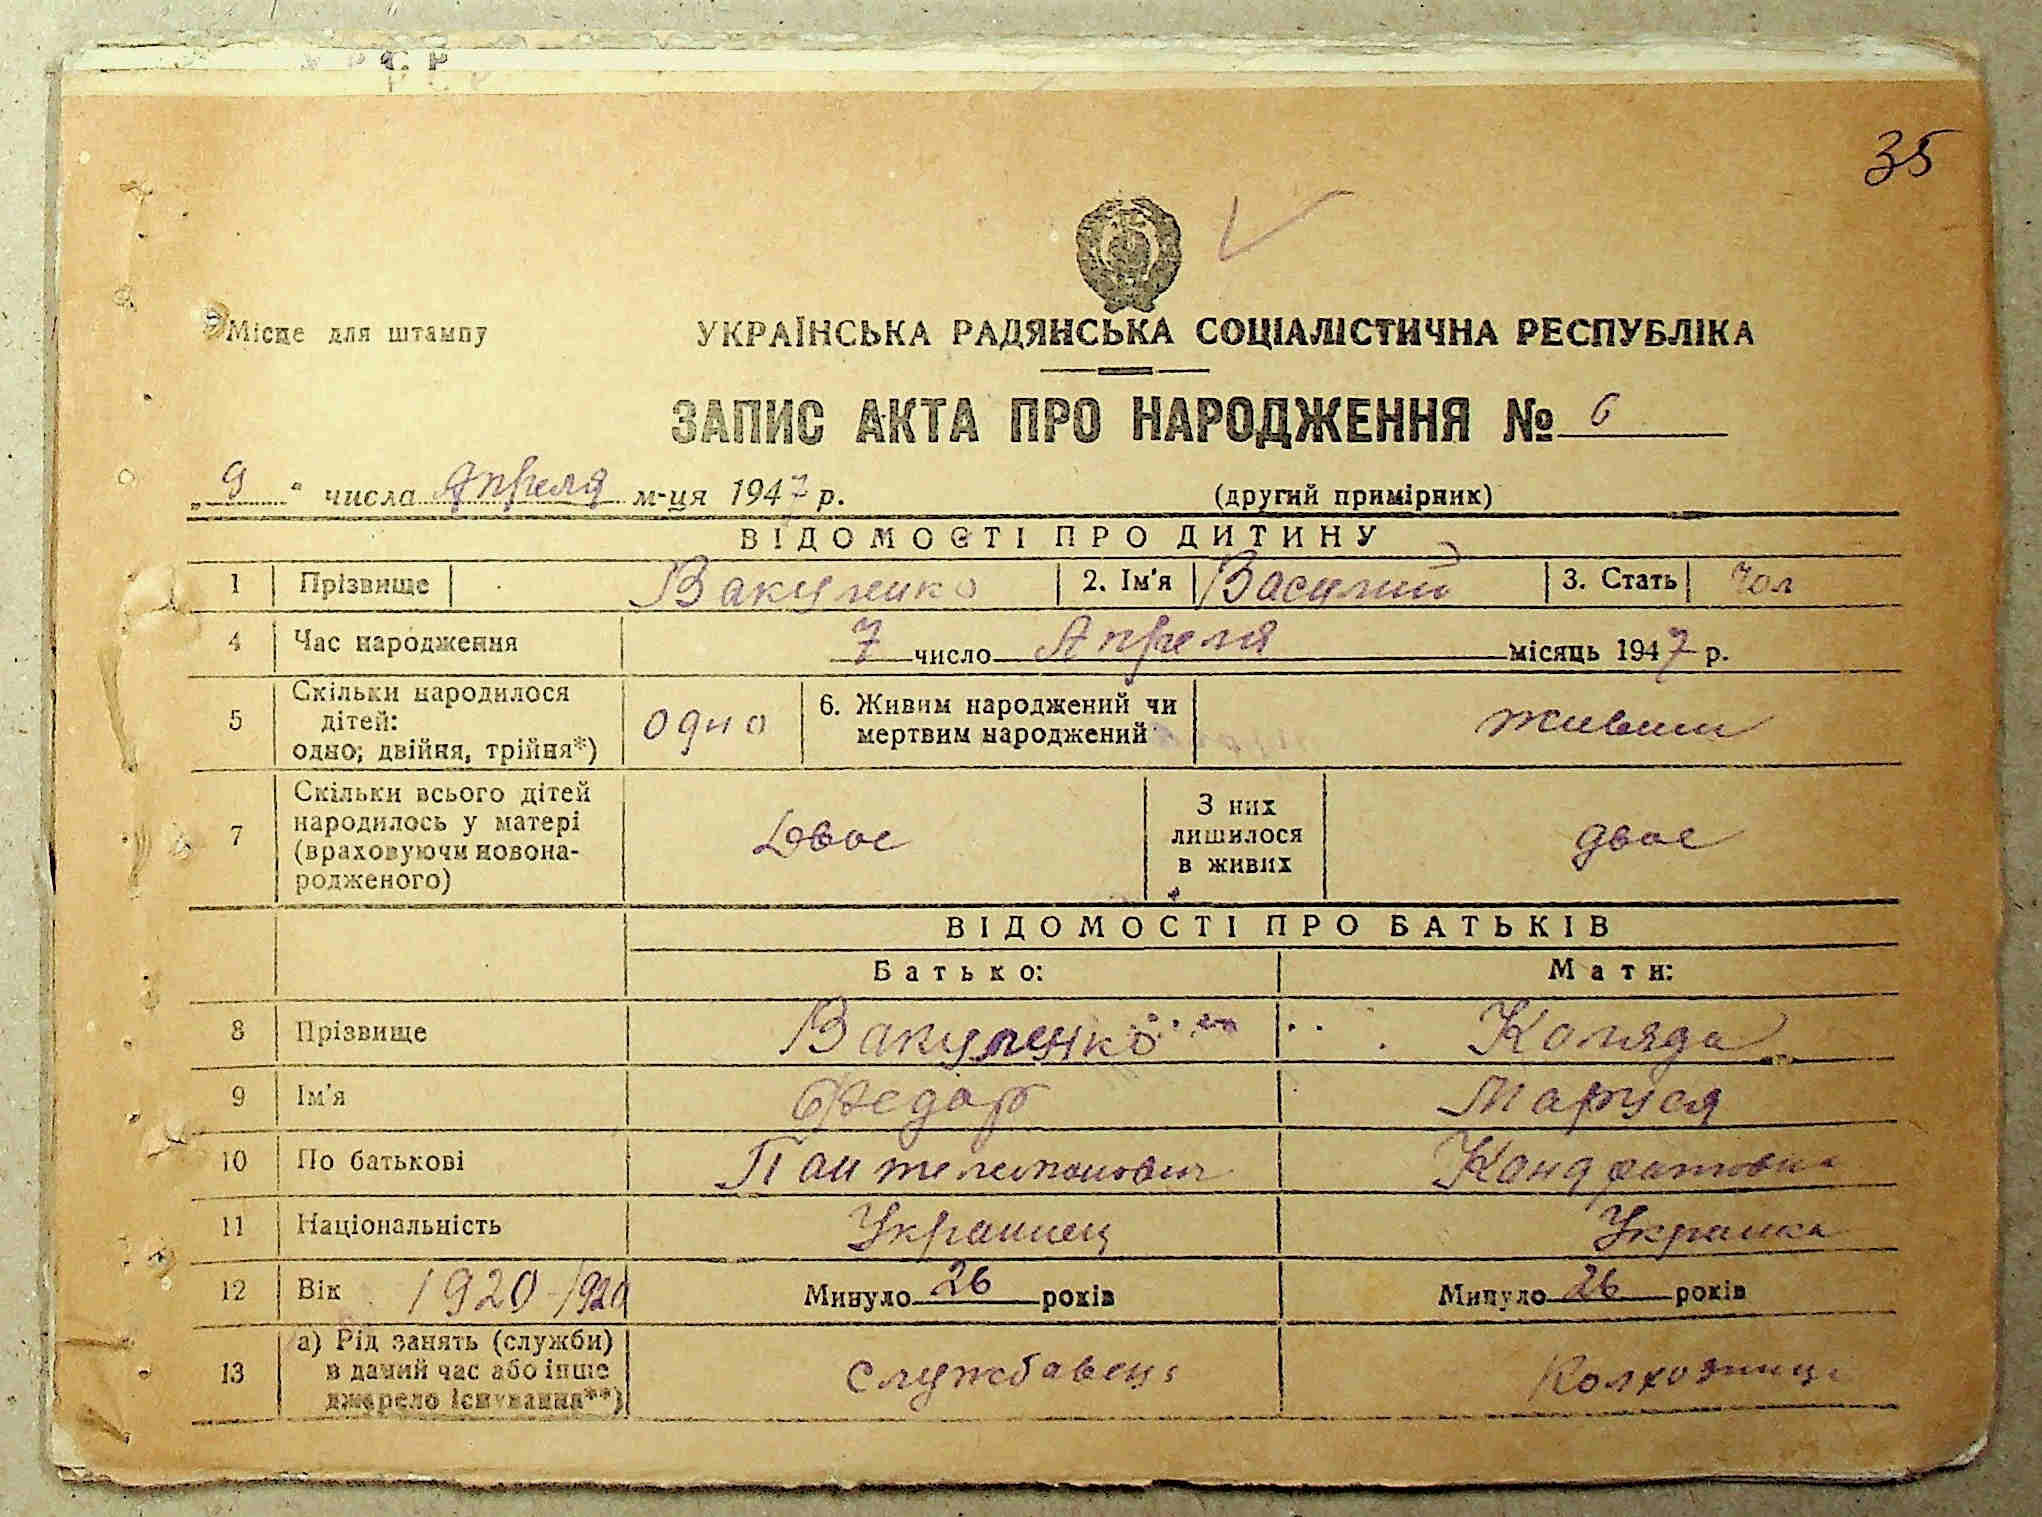 35
Місце для штампу
УКРАЇНСЬКА РАДЯНСЬКА СОЦІАЛІСТИЧНА РЕСПУБЛІКА
ЗАПИС АКТА ПРО НАРОДЖЕННЯ № 6
„ 9 " числа Апреля м-ця 1947 р. (другий примірник)
ВІДОМОСТІ ПРО ДИТИНУ
1 Прізвище Вакуленко 2. Ім'я Василий 3. Стать Чол
4 Час народження 7 число Апреля місяць 1947 р.
5 Скільки народилося дітей: одно; двійня, трійня*) одно 6. Живим народжений чи мертвим народжений живим
7 Скільки всього дітей народилось у матері (враховуючи новонародженого) Двое З них лишилося в живих двое
ВІДОМОСТІ ПРО БАТЬКІВ
Батько: Мати:
8 Прізвище Вакуленко Коляда
9 Ім'я Федор Маруся
10 По батькові Пантелемонович Кандратовна
11 Національність Украинец Украинка
12 Вік 1920-1920 Минуло 26 років Минуло 26 років
13 а) Рід занять (служби) в даний час або інше джерело існування**) службавець Колхозниця